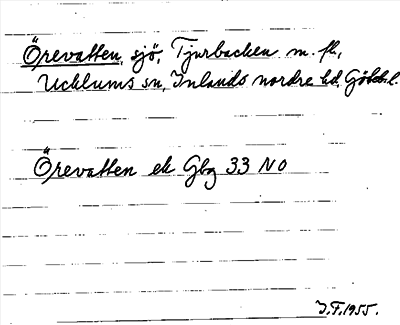 Örevatten, sjö, Tjurbacken m. fl.,
Ucklums sn, Inlands nordre hd, Götebl.
Örevatten ek Gbg 33 NO
J.F. 1955.